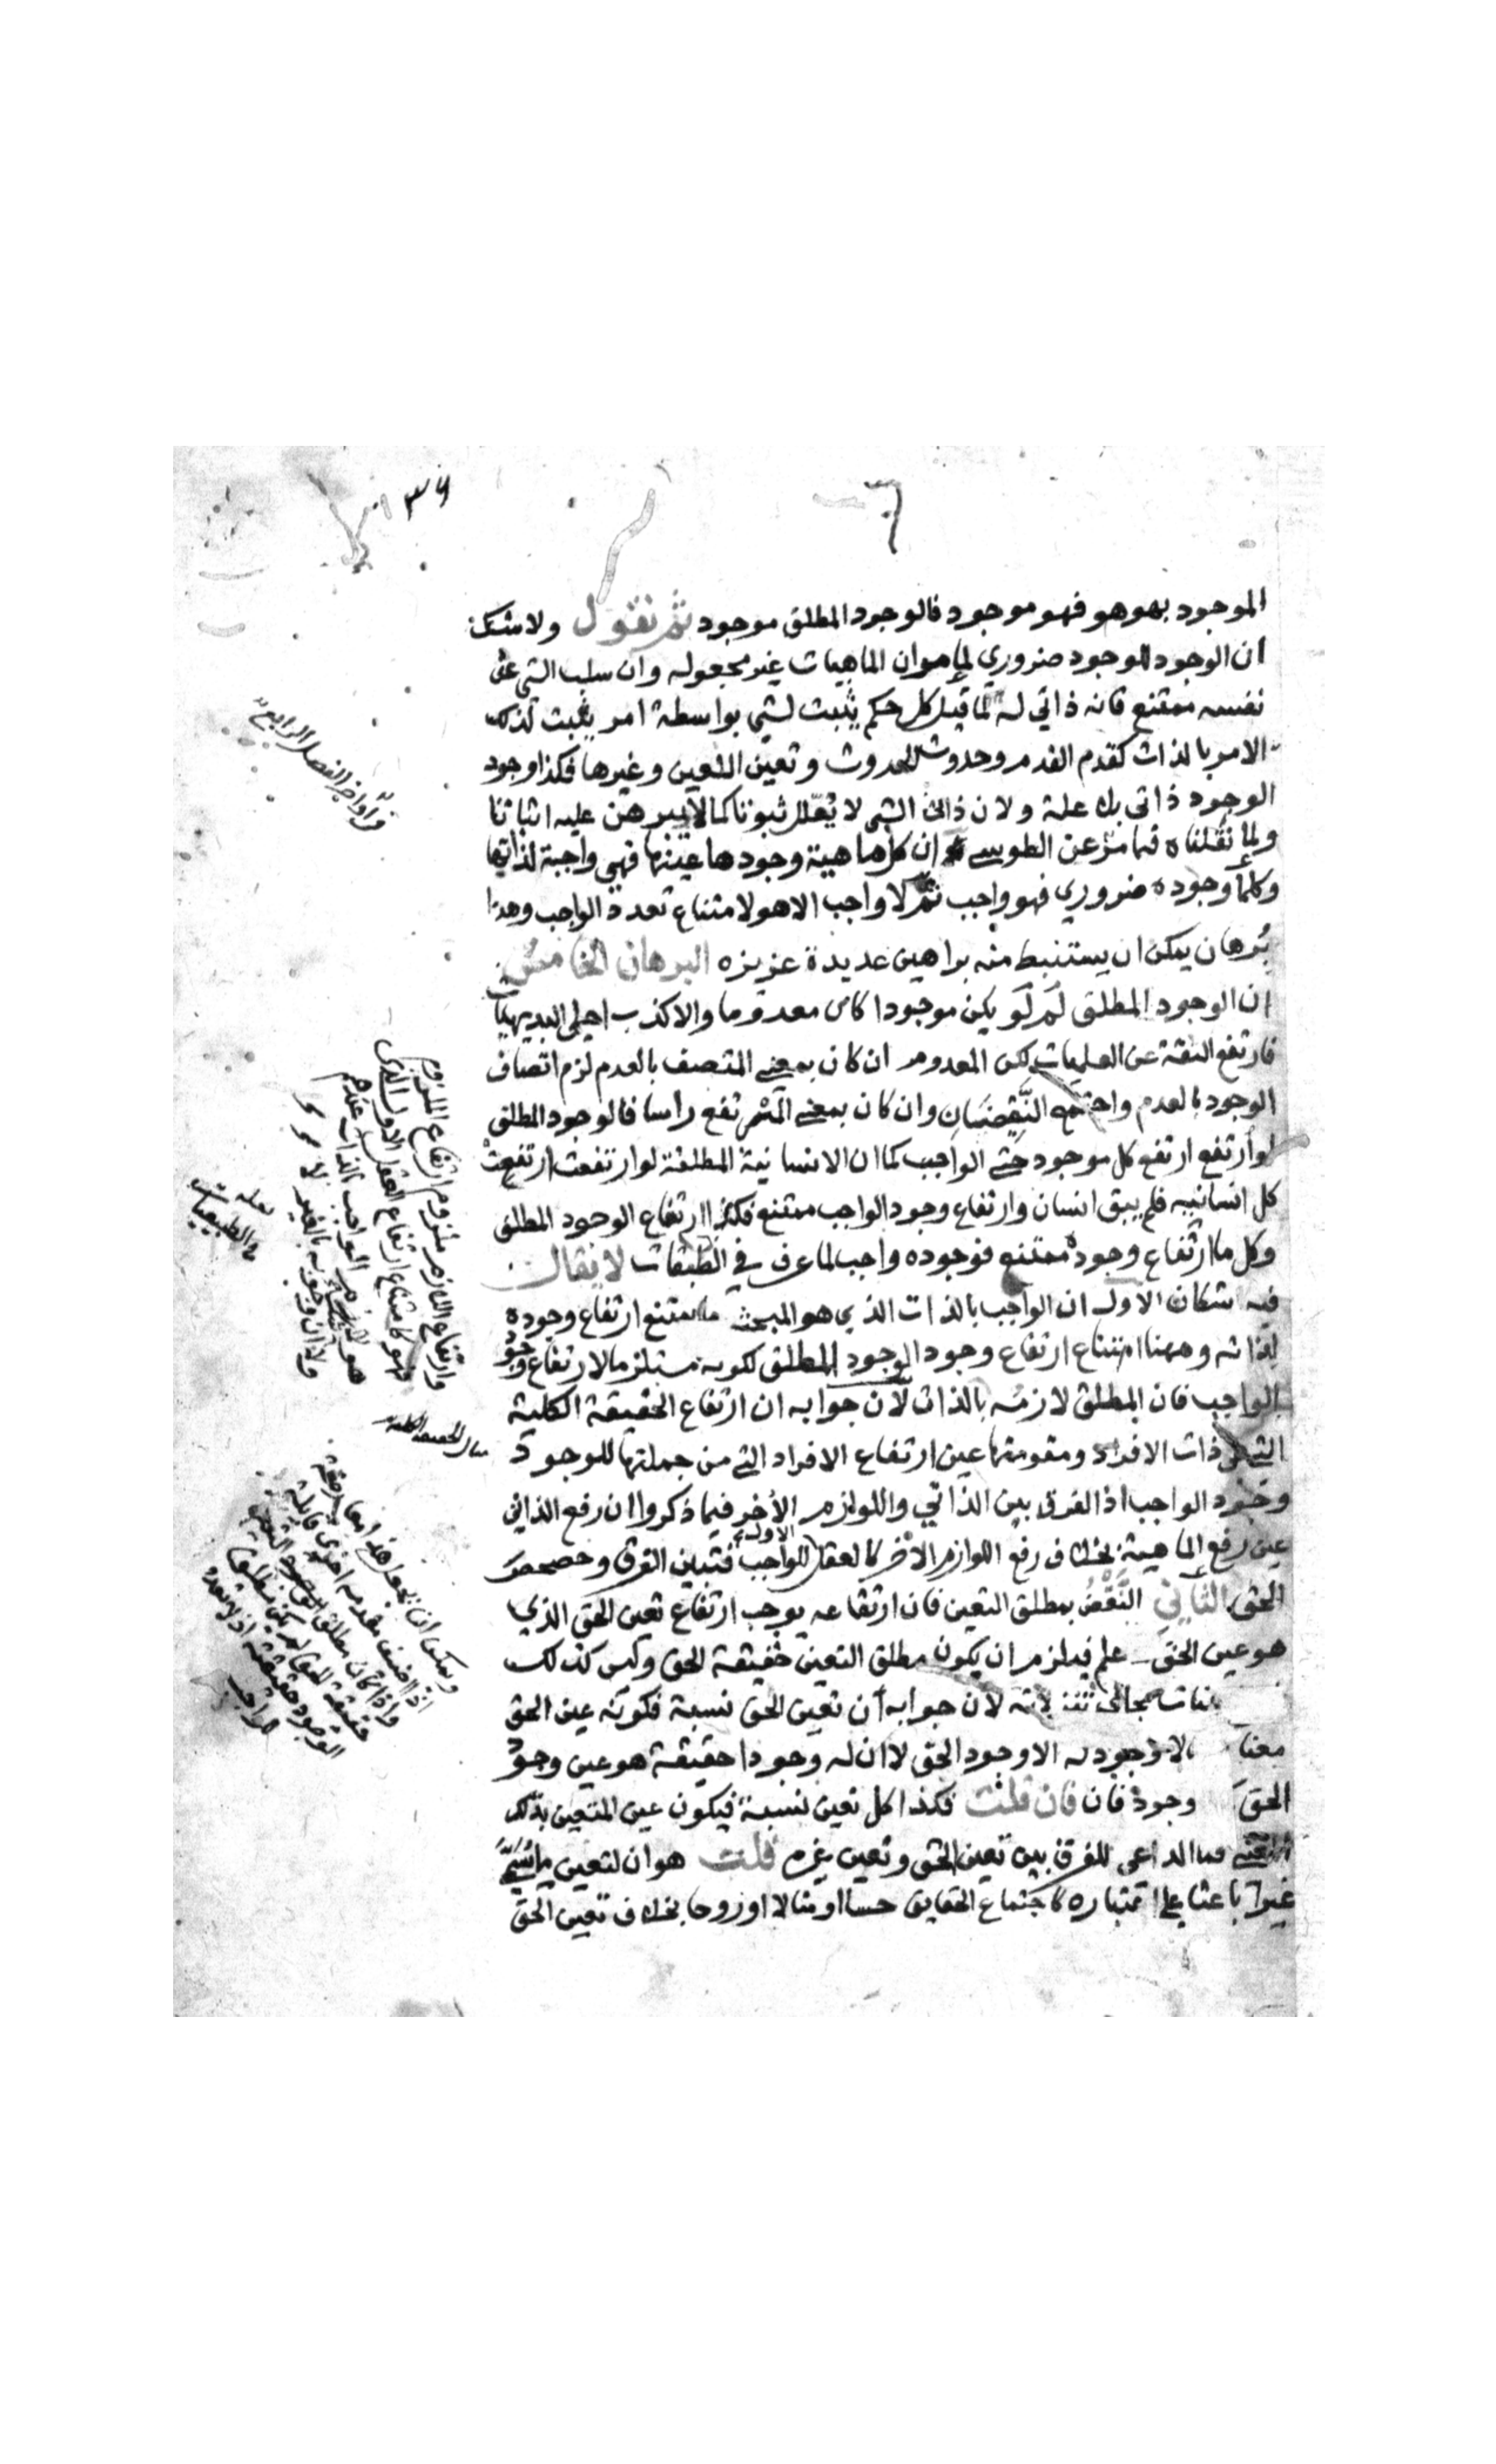 الموجود بهو هو فهو موجود فالوجود المطلق موجود ثم نقول ولا شك
ان الوجود للوجود ضروري لما هو ان الماهيات غير مجعوله وان سلب الشي عن
نفسه ممتنع فانه ذاتي له لما قيل كل حكم يثبت لشي بواسطة امر يثبت لذلك
الامر بالذات كقدم القدم وحدوث الحدوث وتعين التعين وغيرها فكذا وجود
الوجود ذاتي بلا علة ولان ذاتي الشي لا يعلل ثبوتا كما لا يبرهن عليه اثباتا
ولما نقلناه فيما مر عن الطوسي ان كل ماهية وجودها عينها فهي واجبة لذاتها
وكلما وجوده ضروري فهو واجب ثم لا واجب الا هو لامتناع تعدد الواجب وهذا
برهان يمكن ان يستنبط منه براهين عديدة عزيزه البرهان الخامس
ان الوجود المطلق لو لم يكن موجودا كان معدوما والا كذب اجلى البديهيات
فارتفع الثقة عن العلميات لكن المعدوم ان كان بمعنى المتصف بالعدم لزم اتصاف
الوجود بالعدم واجتمع النقيضان وان كان بمعنى المرتفع راسا فالوجود المطلق
لو ارتفع ارتفع كل موجود حتى الواجب كما ان الانسانية المطلقة لو ارتفعت ارتفعت
كل انسانيه فلم يبق انسان وارتفاع وجود الواجب ممتنع فكذا ارتفاع الوجود المطلق
وكل ما ارتفاع وجوده ممتنع فوجوده واجب لما عرف في الطبقات لا يقال
فيه شكان الاول ان الواجب بالذات الذي هو المبحث ما يمتنع ارتفاع وجوده
لذاته وههنا امتناع ارتفاع وجود الوجود المطلق لكونه مستلزما لارتفاع وجود
الواجب فان المطلق لازمه بالذات لان جوابه ان ارتفاع الحقيقة الكلية
التي هي ذات الافراد ومقومتها عين ارتفاع الافراد التي من جملتها للوجود
وجود الواجب اذ الفرق بين الذاتي واللوازم الأخر فيما ذكروا ان رفع الذاتي
عين رفع الماهية بخلاف رفع اللوازم الأخر كالعقل الاول للواجب فتبين الفرق وحصحص
الحق الثاني النقض بمطلق التعين فان ارتفاعه يوجب ارتفاع تعين الحق الذي
هو عين الحق علم فيلزم ان يكون مطلق التعين حقيقة الحق وليس كذلك
لان جوابه ان تعين الحق نسبة فكونه عين الحق
معناه لا وجود له الا وجود الحق لا ان له وجودا حقيقة هو عين وجود
الحق وجود فان فان قلت فكذا كل تعين نسبة فيكون عين المتعين بذلك
المعنى فما الداعي للفرق بين تعين الحق وتعين غيره قلت هو ان لتعين ما يسمى
غيرا باعثا على اعتباره كاجتماع الحقايق حسا او مثالا او روحا بخلاف تعين الحق
في اواخر الفصل الرابع
وارتفاع اللازم ملزوم ارتفاع الملزوم
فهو كامتناع ارتفاع العقل الاول الذي
لعله
في الطبيعيات